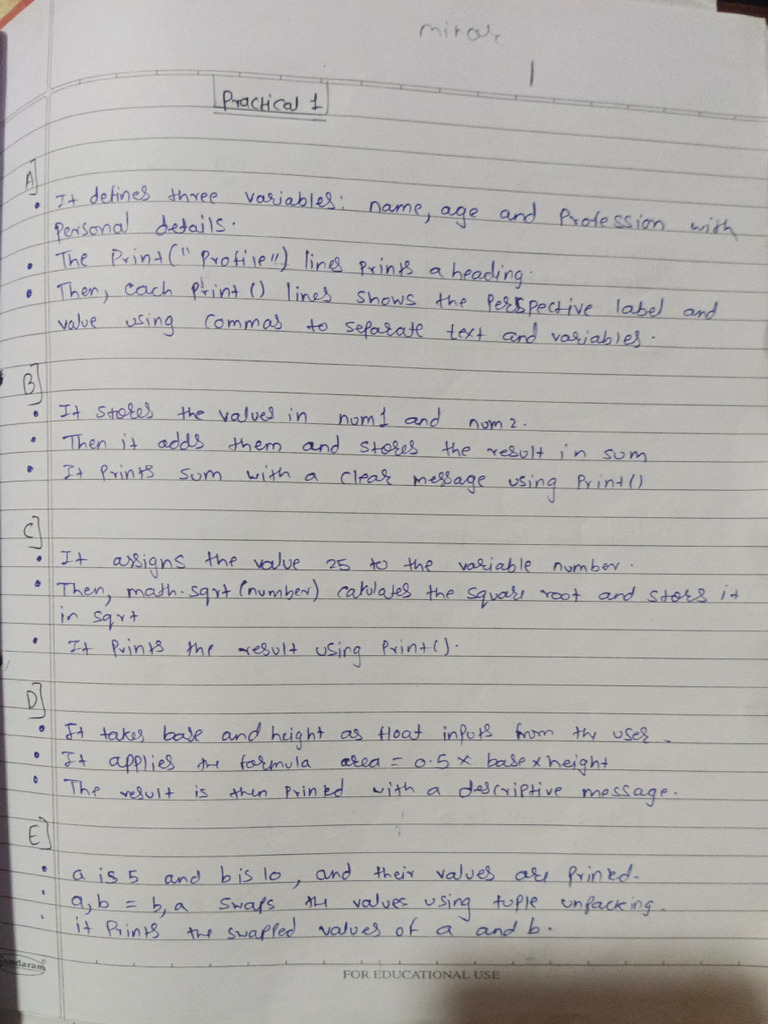 1
Practical 1
A]
• It defines three variables: name, age and Profession with
personal details.
• The Print("Profile") lines prints a heading.
• Then, each print () lines shows the perspective label and
value using commas to separate text and variables.
B]
• It stores the values in num1 and num2.
• Then it adds them and stores the result in sum
• It prints sum with a clear message using Print()
C]
• It assigns the value 25 to the variable number.
• Then, math.sqrt (number) calulates the square root and stors it
in sqrt
• It prints the result using Print().
D]
• It takes base and height as float inputs from the user.
• It applies the formula area = 0.5 x base x height
• The result is then printed with a descriptive message.
E]
• a is 5 and b is 10, and their values are printed.
• a, b = b, a swaps the values using tuple unpacking.
• it prints the swapped values of a and b.
FOR EDUCATIONAL USE